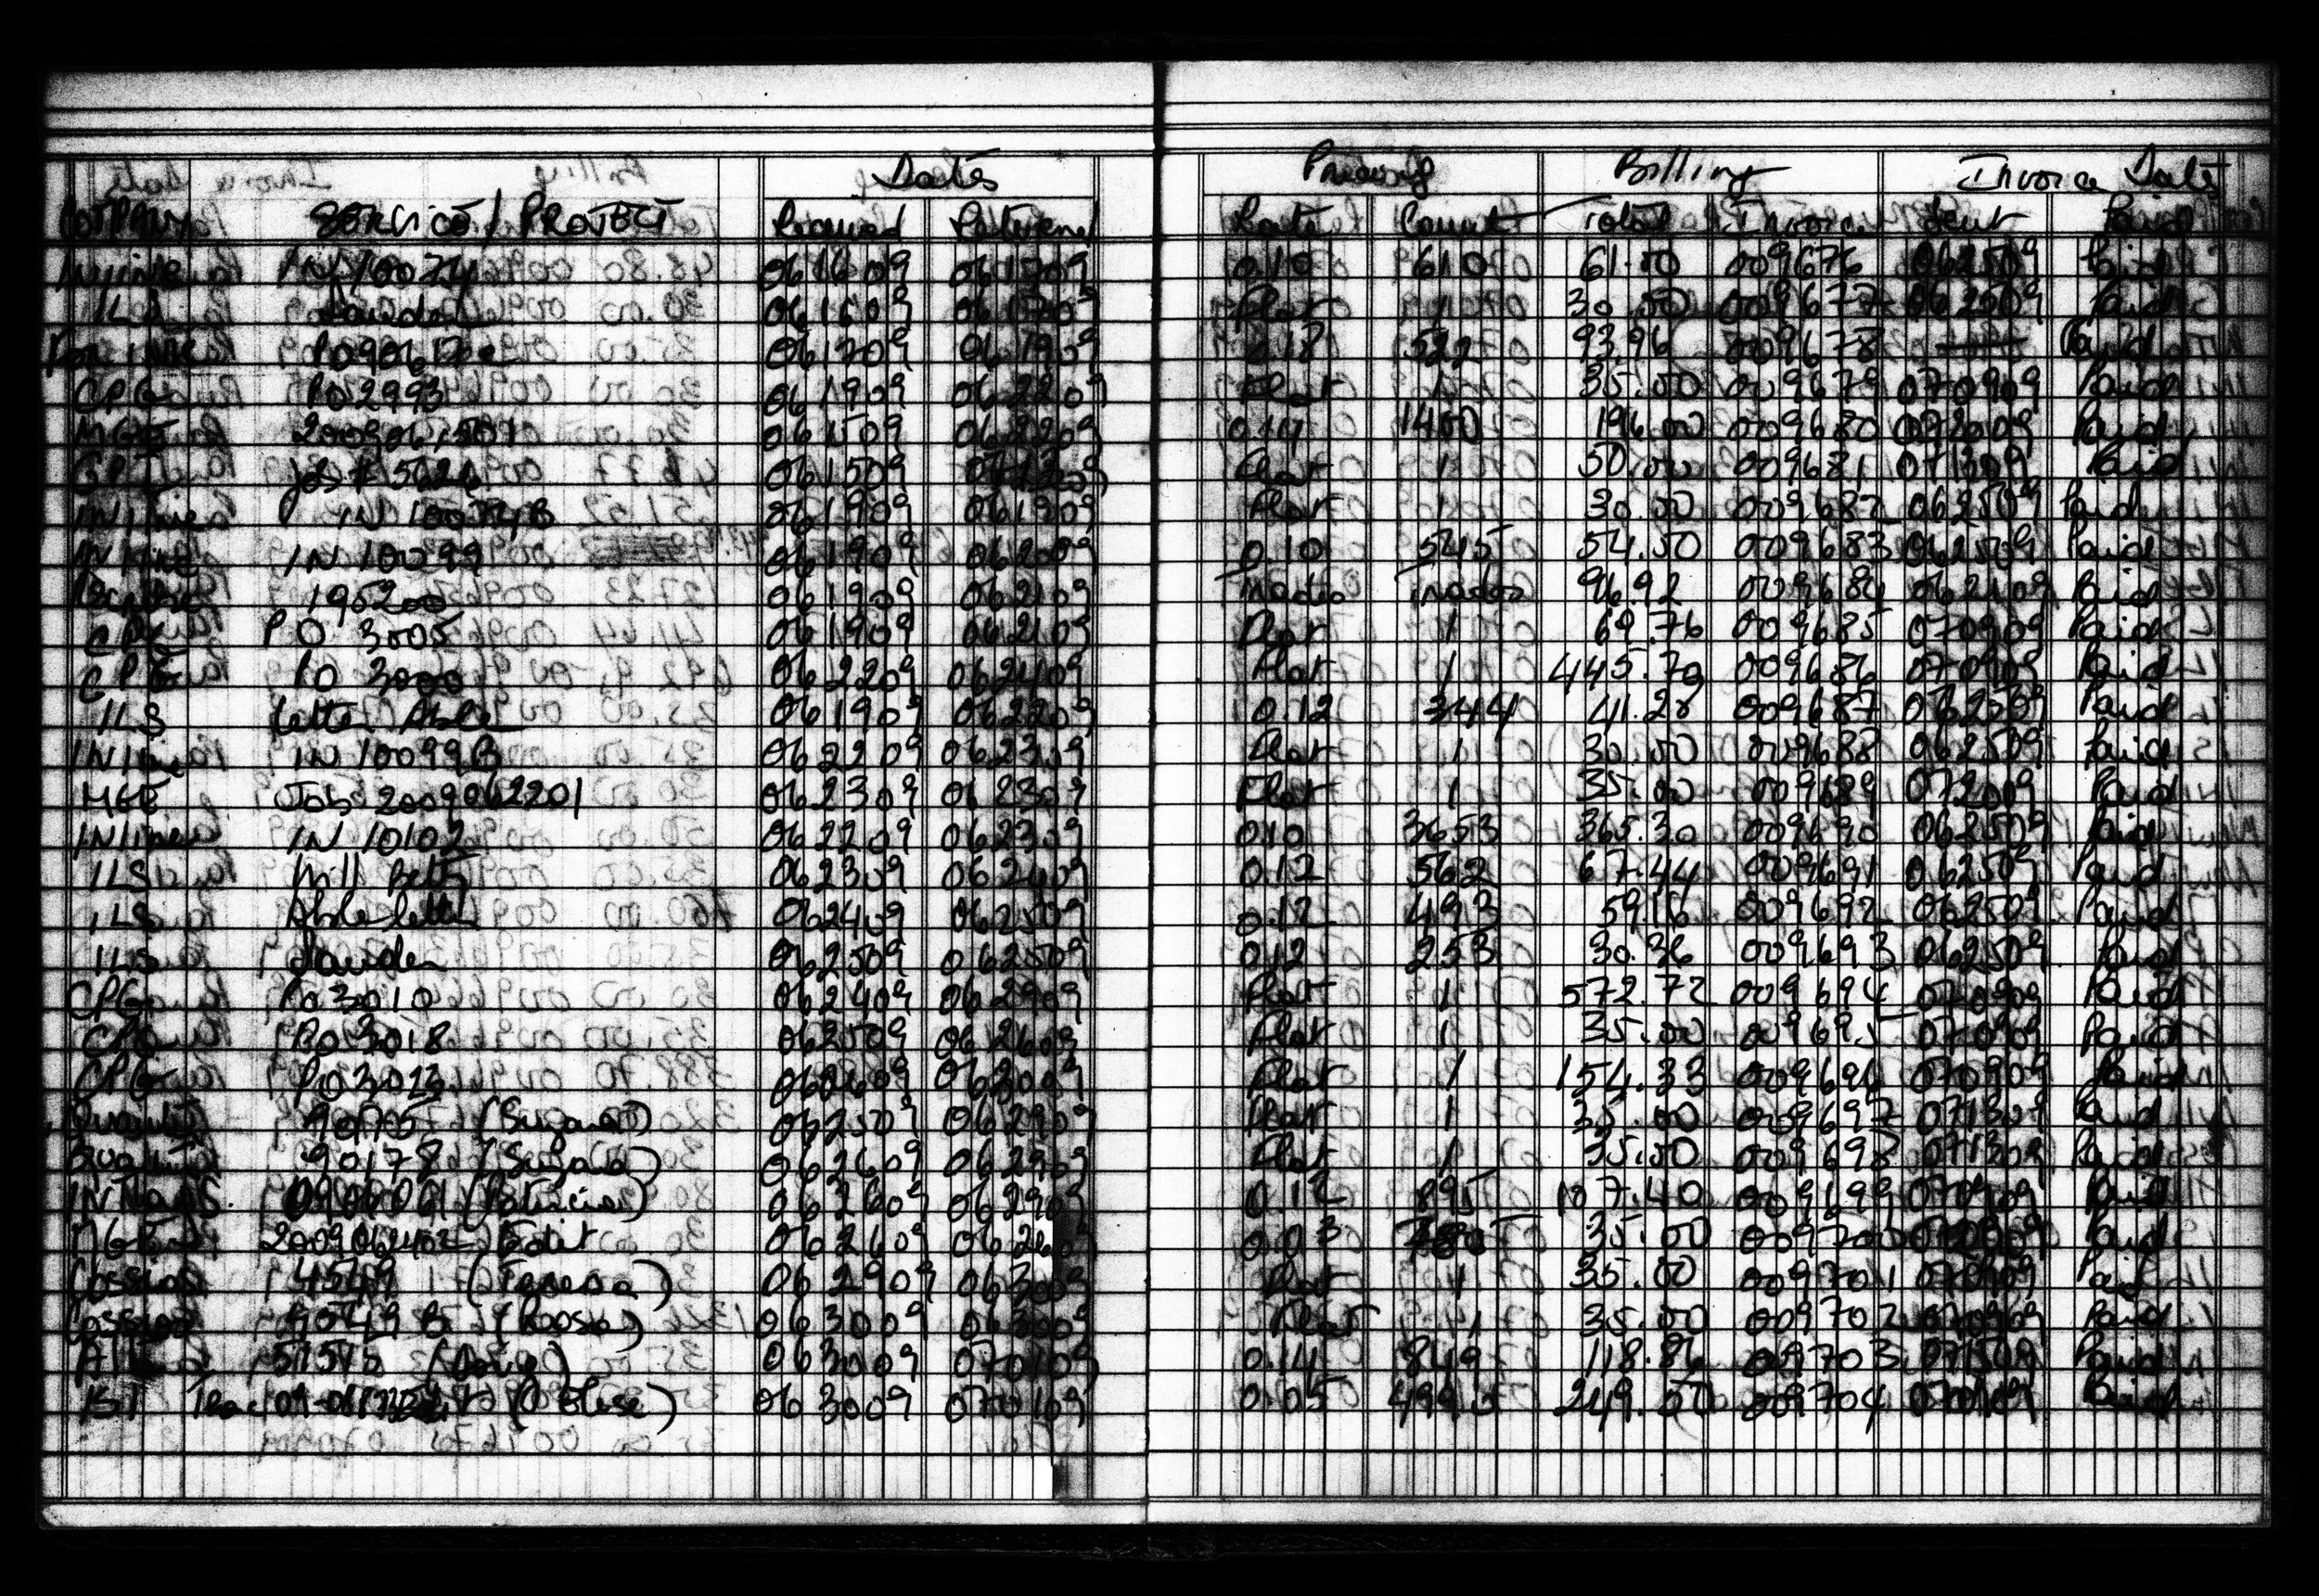 Dates Pricing Billing Invoice Dates
COMPANY SERVICE / PROJECT Received Returned Rate Count Total Invoice Sent Paid
Inline IN 10074 061609 061709 0.10 610 61.00 009676 062509 Paid
ILS 061609 061709 Flat 1 30.00 009677 062509 Paid
061709 061909 0.18 522 93.96 009678 — Paid
CPG PO 2993 061909 062209 Flat 1 35.00 009679 070909 Paid
MGE 2009061501 061509 062209 0.14 1400 196.00 009680 072009 Paid
GPI Job # 5626 061509 Flat 1 50.00 009681 071309 Paid
INline IN 10074B 061909 061909 Flat 1 30.00 009682 062509 Paid
INline IN 10099 061909 062009 0.10 545 54.50 009683 062509 Paid
195200 061909 062109 96.92 009684 Paid
CPG PO 3005 061909 062109 Flat 1 69.76 009685 070909 Paid
CPG PO 3000 062209 062409 Flat 1 445.70 009686 070909 Paid
ILS Letter Able 061909 062209 0.12 344 41.28 009687 062509 Paid
INline IN 10099B 062209 062309 Flat 1 30.00 009688 062509 Paid
MGE Job 2009062201 062309 062309 Flat 1 35.00 009689 072009 Paid
INline IN 10102 062209 062309 0.10 3653 365.30 009690 062509 Paid
ILS Will Betty 062309 062409 0.12 562 67.44 009691 062509 Paid
ILS Able letter 062409 062509 0.12 493 59.16 009692 062509 Paid
ILS 062509 062509 0.12 253 30.36 009693 062509 Paid
CPG PO 3010 062409 062909 Flat 1 572.72 009694 070909 Paid
CPG PO 3018 062509 062609 Flat 1 35.00 009695 070909 Paid
CPG PO 3023 062609 Flat 1 154.33 009696 070909 Paid
90175 062509 062909 Flat 1 35.00 009697 071309 Paid
Quality 90178 062609 062909 Flat 1 35.00 009698 071309 Paid
0906061 (Patricia) 062609 062909 0.12 895 107.40 009699 070909 Paid
MGE 2009062402 Edit 062609 0.03 35.00 009700 Paid
Cossio 4549 (Teresa) 062909 063009 Flat 1 35.00 009701 070909 Paid
Cossio 4549 B 063009 063009 Flat 1 35.00 009702 070909 Paid
063009 070109 0.14 849 118.86 009703 071509 Paid
063009 070109 0.05 4990 249.50 009704 Paid